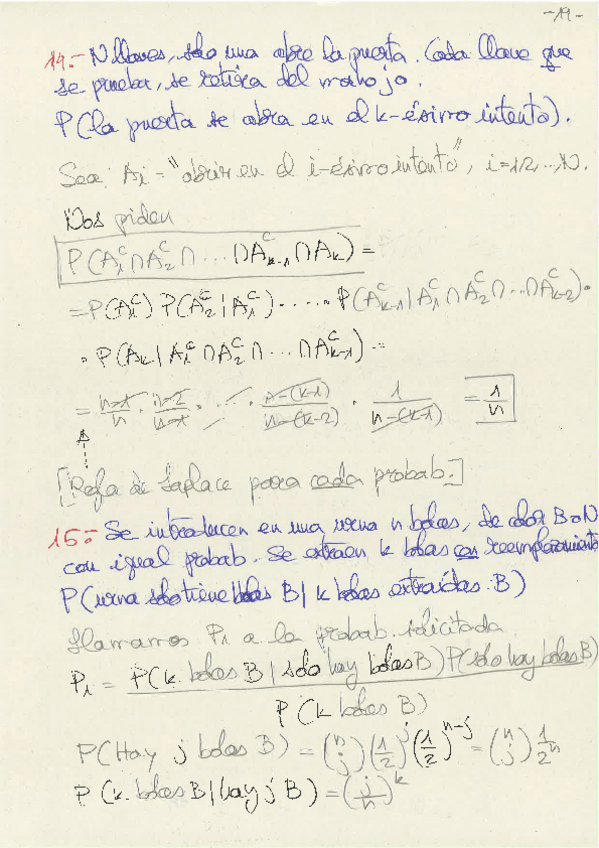 -19-
14.- N llaves, sólo una abre la puerta. Cada llave que
se prueba, se retira del manojo.
P(la puerta se abra en el k-ésimo intento).
Sea Ai = "abrir en el i-ésimo intento", i=1,2,...,N.
Nos piden
P(A₁ᶜ∩A₂ᶜ∩...∩Aₖ₋₁ᶜ∩Aₖ) =
= P(A₁ᶜ) P(A₂ᶜ|A₁ᶜ) · ... · P(Aₖ₋₁ᶜ|A₁ᶜ∩A₂ᶜ∩...∩Aₖ₋₂ᶜ) ·
· P(Aₖ|A₁ᶜ∩A₂ᶜ∩...∩Aₖ₋₁ᶜ) =
= n-1/n · n-2/n-1 · ... · n-(k-1)/n-(k-2) · 1/n-(k-1) = 1/n
[Regla de Laplace para cada probab.]
15.- Se introducen en una urna n bolas, de color B o N
con igual probab. Se extraen k bolas con reemplazamiento
P(urna sólo tiene bolas B | k bolas extraídas B)
Llamamos P₁ a la probab. solicitada
P₁ = P(k bolas B | sólo hay bolas B) P(sólo hay bolas B)
P(k bolas B)
P(Hay j bolas B) = (n j) (1/2)ʲ (1/2)ⁿ⁻ʲ = (n j) 1/2ⁿ
P(k bolas B | hay j B) = (j/n)ᵏ